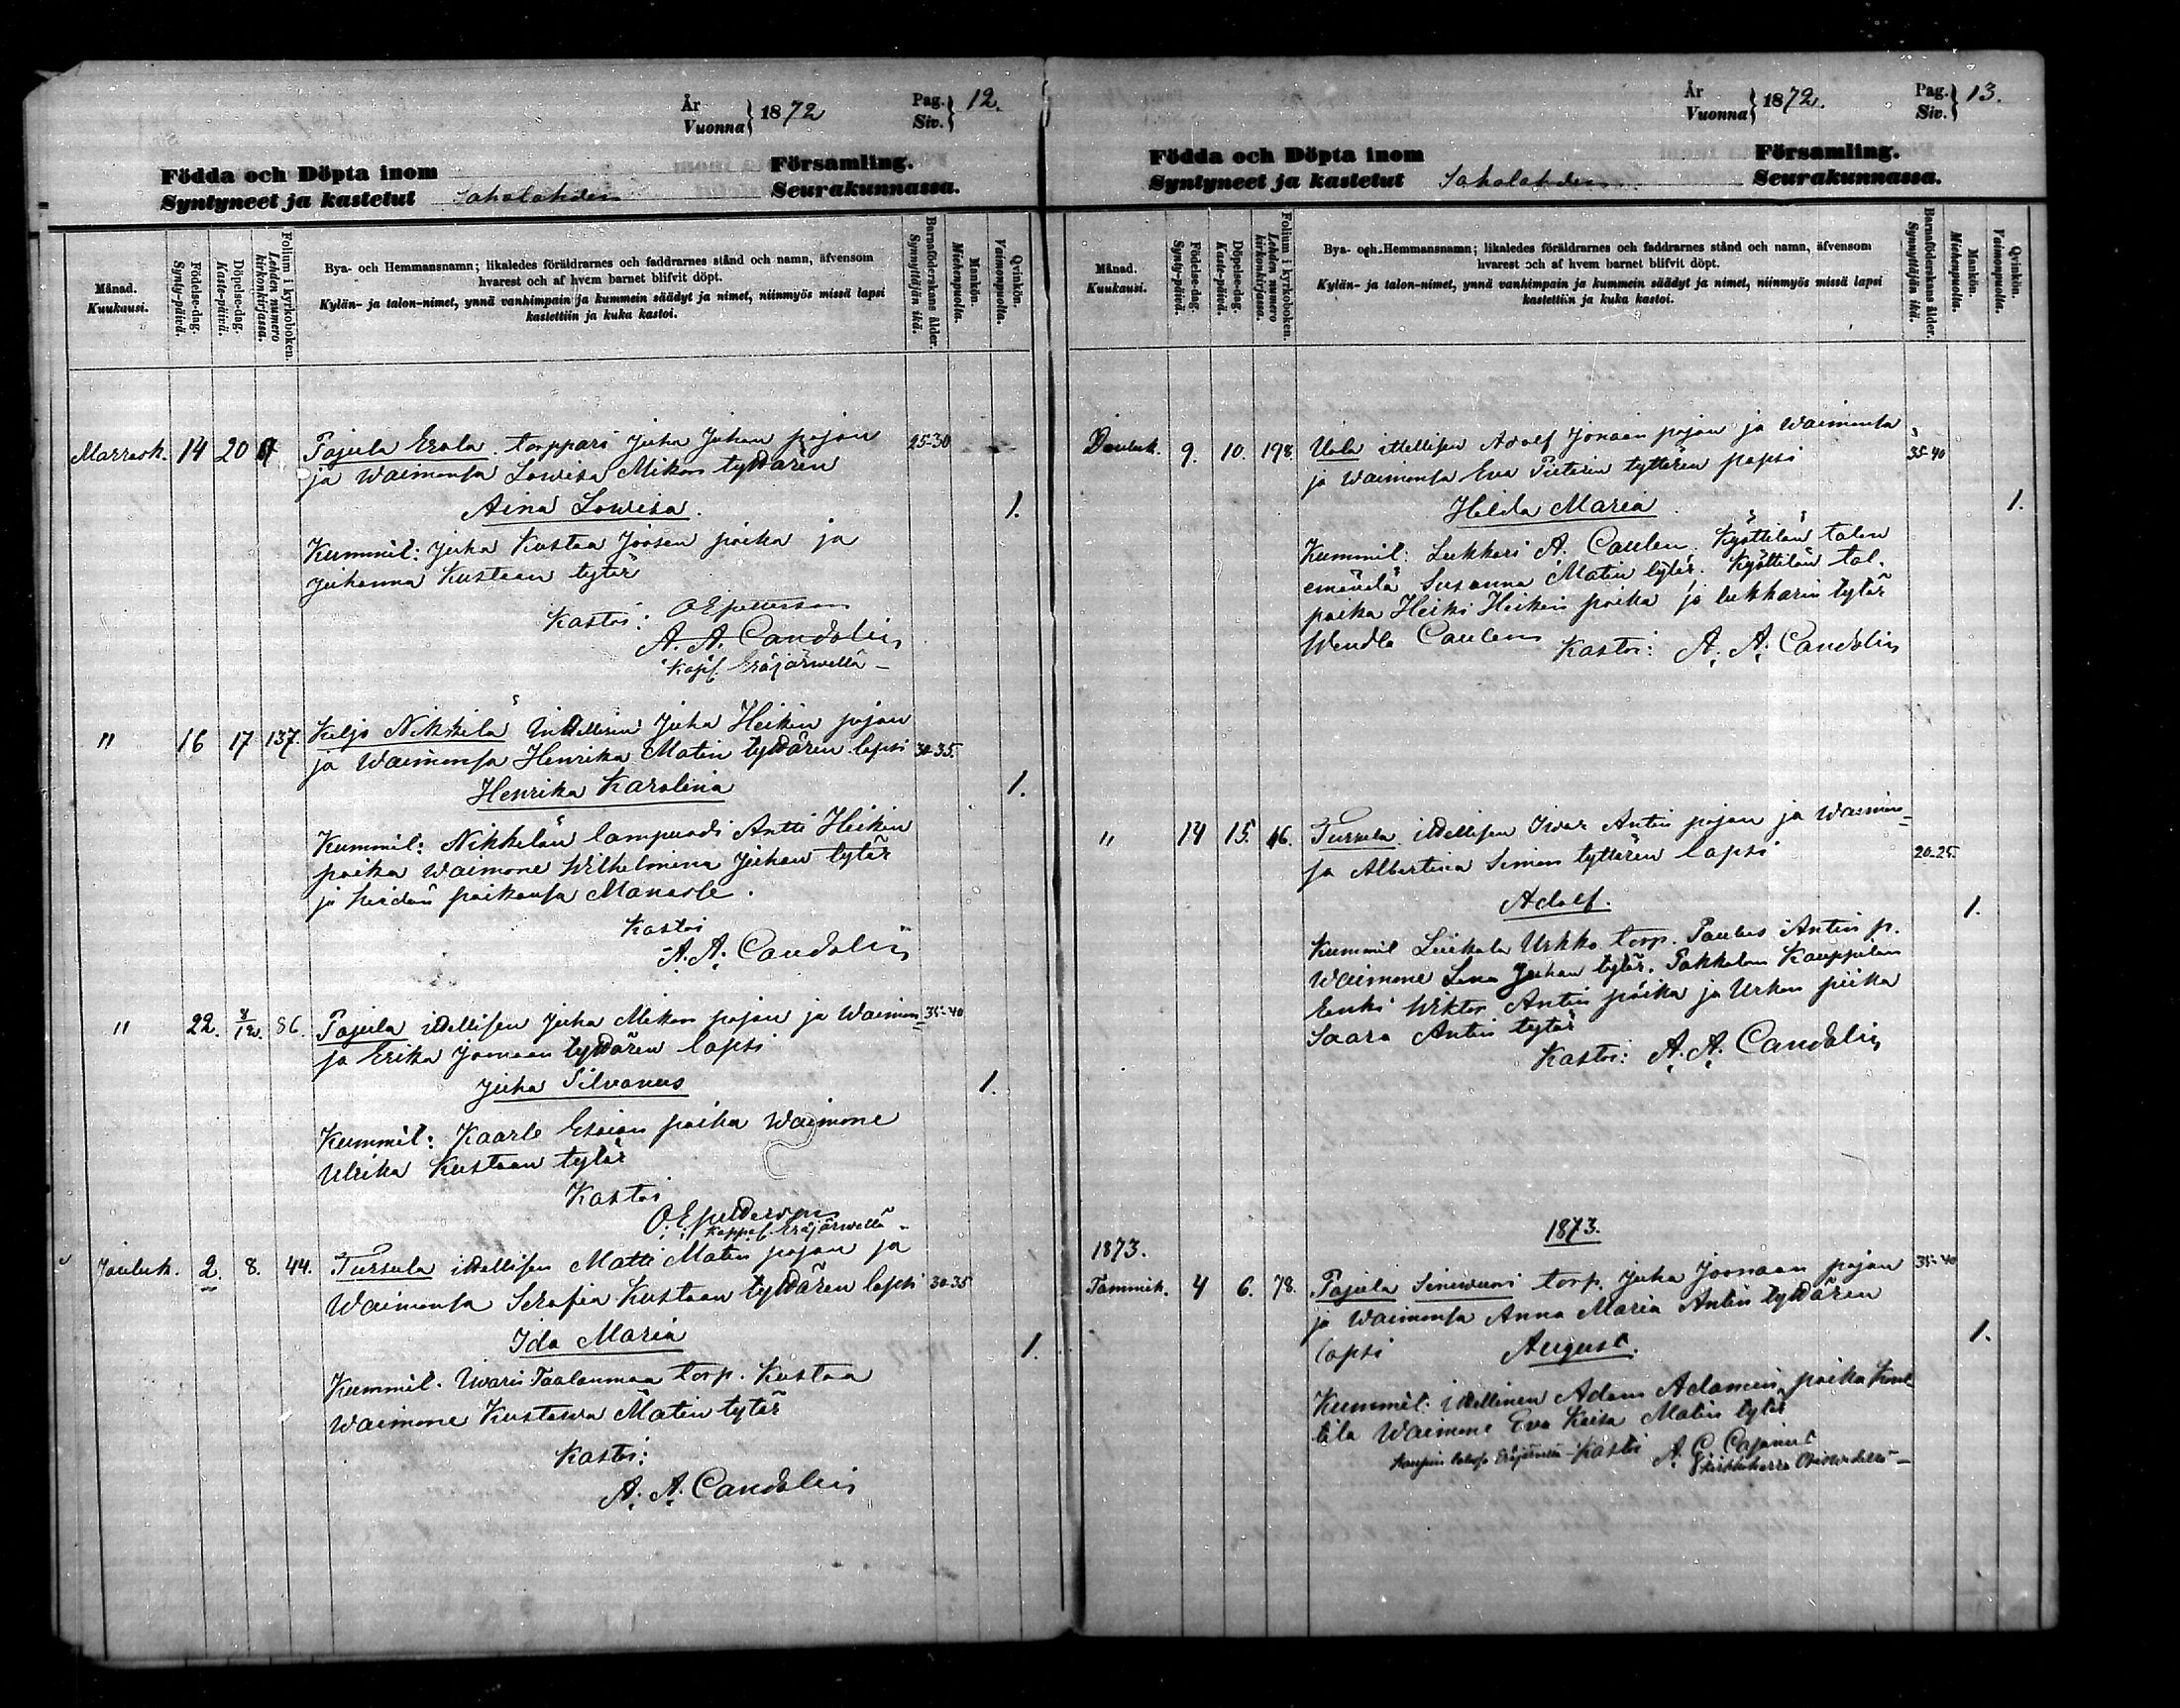 År
Vuonna } 1872
Pag.
Siv. } 12.
Födda och Döpta inom Församling.
Syntyneet ja kastetut Sahalahden Seurakunnassa.
Månad.
Kuukausi.
Födelse-dag.
Synty-päivä.
Döpelse-dag.
Kaste-päivä.
Folium i kyrkoboken.
Lehden numero
kirkonkirjassa.
Bya- och Hemmansnamn; likaledes föräldrarnes och faddrarnes stånd och namn, äfvensom
hvarest och af hvem barnet blifvit döpt.
Kylän- ja talon-nimet, ynnä vanhimpain ja kummein säädyt ja nimet, niinmyös missä lapsi
kastettiin ja kuka kastoi.
Barnaföderskans ålder.
Synnyttäjän ikä.
Mankön.
Miehenpuolta.
Qvinkön.
Vaimonpuolta.
Marrask. 14 20 Pajula Erola torppari Juha Juhan pojan 25-30
ja Waimonsa Lowisa Mikon tyttären
Aina Lowisa. 1.
Kummit: Juha Kustaa Joosen poika ja
Juhanna Kustaan tytär
Kastoi: O E Petterson
A. A. Candolin
Kapl. Eräjärwellä
" 16 17 137. Keljo Nikkilä Ittellisen Juha Heikin pojan
ja Waimonsa Henrika Matin tyttären lapsi 30-35.
Henrika Karolina 1.
Kummit: Nikkilän lampuodi Antti Heikin
poika Waimone Wilhelmina Juhan tytär
ja heidän poikansa Manasse.
Kastoi
A. A. Candolin
" 22. 8/12. 86. Pajula ittellisen Juha Mikon pojan ja Waimon= 35-40
sa Erika Joonaan tyttären lapsi
Juha Silvanus 1.
Kummit: Kaarle Esaian poika Waimone
Ulrika Kustaan tytär
Kastoi
O. E. Petterson
Kappal. Eräjärwellä
Jouluk. 2. 8. 44. Tursula ittellisen Matti Matin pojan ja
Waimonsa Serafia Kustaan tyttären lapsi 30-35
Ida Maria 1.
Kummit. Taalanmaa torp. Kustaa
Waimone Kustawa Matin tytär
Kastoi:
A. A. Candolin
År
Vuonna } 1872.
Pag.
Siv. } 13.
Födda och Döpta inom Församling.
Syntyneet ja kastetut Sahalahden Seurakunnassa.
Månad.
Kuukausi.
Födelse-dag.
Synty-päivä.
Döpelse-dag.
Kaste-päivä.
Folium i kyrkoboken.
Lehden numero
kirkonkirjassa.
Bya- och Hemmansnamn; likaledes föräldrarnes och faddrarnes stånd och namn, äfvensom
hvarest och af hvem barnet blifvit döpt.
Kylän- ja talon-nimet, ynnä vanhimpain ja kummein säädyt ja nimet, niinmyös missä lapsi
kastettiin ja kuka kastoi.
Barnaföderskans ålder.
Synnyttäjän ikä.
Mankön.
Miehenpuolta.
Qvinkön.
Vaimonpuolta.
Jouluk. 9. 10. 198. ittellisen Adolf Jonaan pojan ja Waimonsa
ja Waimonsa Eva tyttären lapsi 35-40
Hilda Maria 1.
Kummit: Lukkari A. Caulen, Kyöttilän talon
emäntä Susanna Matin tytär. Kyöttilän tal.
poika Heikki Heikin poika ja lukkarin tytär
Wendla Caulen Kastoi: A. A. Candolin
" 14 15. 46. Tursula. ittellisen Iwar Antin pojan ja Waimon=
sa Albertina Simon tyttären lapsi 20-25.
Adolf. 1.
Kummit Urkko torp. Paulus Antin p.
Waimone Lena Juhan tytär. Pakkalan Kauppilan
renki Wiktor Antin poika ja Urkon piika
Saara Antin tytär
Kastoi: A. A. Candolin
1873.
1873.
Tammik. 4 6. 78. Pajula torp. Juha Joonaan pojan 35-40
ja Waimonsa Anna Maria Antin tyttären
lapsi August. 1.
Kummit: ittellinen Adam Adamin poika
Waimone Eva Kaisa Matin tytär
Kastoi A. G. Cajanus
kirkkoherra